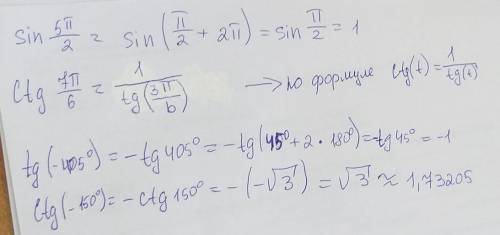 sin 5π/2 = sin(π/2 + 2π) = sin π/2 = 1
Ctg 7π/6 = 1/tg(3π/b) → по формуле Ctg(t) = 1/tg(t)
tg(-405°) = -tg 405° = -tg(45° + 2 · 180°) = -tg 45° = -1
Ctg(-150°) = -ctg 150° = -(-√3) = √3 ≈ 1,73205